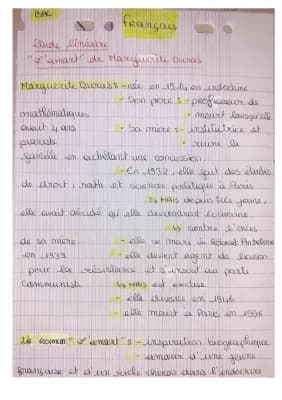 BAC
français
étude linéaire
"L'amant" de Marguerite Duras
Marguerite Duras : - née en 1914 en indochine
- Son père : - professeur de
mathématiques - meurt lorsqu'elle
avait 4 ans - Sa mère : - institutrice et
- ruine la
famille en achetant une concession.
- En 1932, elle fait des études
de droit, math et sciences politique à Paris
↳ MAIS depuis très jeune,
elle avait décidé qu'elle deviendrait écrivaine
↳ contre l'avis
de sa mère. - elle se marie à Robert Antelme
en 1939 - elle devient agent de liaison
pour la résistance et s'inscrit au parti
communiste ↳ MAIS est exclue.
- elle divorce en 1946
- elle meurt à Paris en 1996
Le Roman "L'amant" : - inspiration biographique
- amour d'une jeune
française et d'un riche chinois dans l'indochine